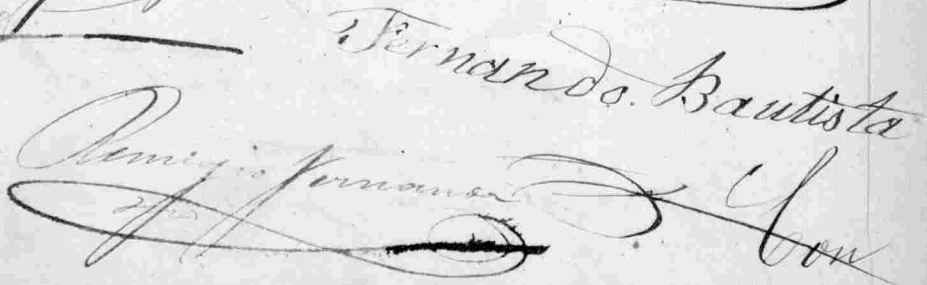 Fernando. Bautista
Remigio Fernandez
Con